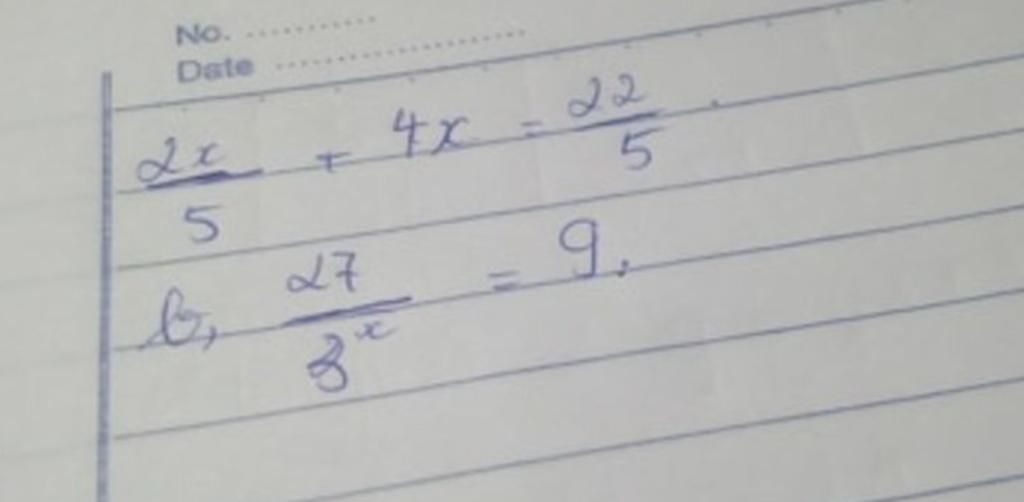 No. ..........
Date ....................
2x/5 + 4x = 22/5.
b, 27/3^x = 9.